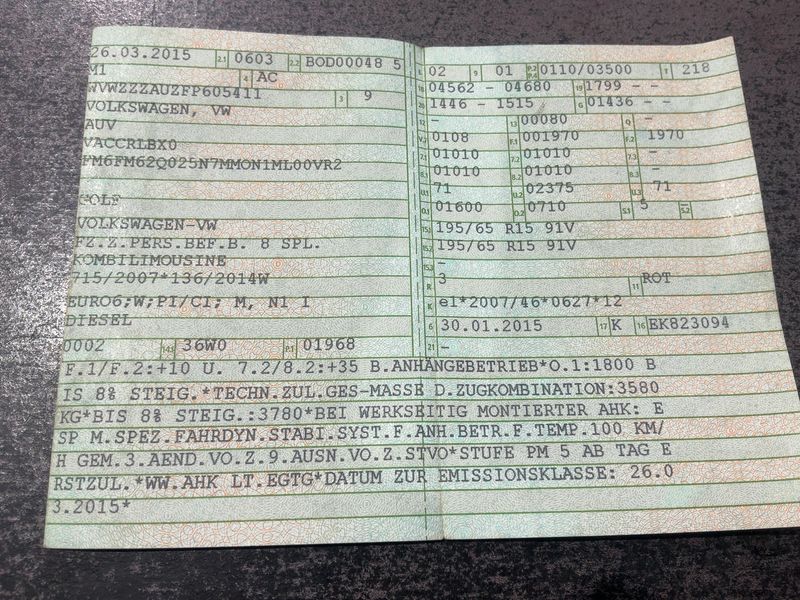 26.03.2015 2.1 0603 2.2 BOD00048 5
M1 4 AC
WVWZZZAUZFP605411 3 9
VOLKSWAGEN, VW
AUV
VACCRLBX0
FM6FM62Q025N7MMON1ML00VR2
GOLF
VOLKSWAGEN-VW
FZ.Z.PERS.BEF.B. 8 SPL.
KOMBILIMOUSINE
715/2007*136/2014W
EURO6;W;PI/CI; M, N1 I
DIESEL
0002 14.1 36W0 P.1 01968
L 02 9 01 P.2 P.4 0110/03500 T 218
18 04562 - 04680 19 1799 - -
20 1446 - 1515 G 01436 - -
12 - 13 00080 Q -
V.7 0108 F.1 001970 F.2 1970
7.1 01010 7.2 01010 7.3 -
8.1 01010 8.2 01010 8.3 -
U.1 71 U.2 02375 U.3 71
O.1 01600 O.2 0710 S.1 5 S.2
15.1 195/65 R15 91V
15.2 195/65 R15 91V
15.3 -
R 3 11 ROT
K e1*2007/46*0627*12
6 30.01.2015 17 K 16 EK823094
21 -
F.1/F.2:+10 U. 7.2/8.2:+35 B.ANHÄNGEBETRIEB*O.1:1800 B
IS 8% STEIG.*TECHN.ZUL.GES-MASSE D.ZUGKOMBINATION:3580
KG*BIS 8% STEIG.:3780*BEI WERKSEITIG MONTIERTER AHK: E
SP M.SPEZ.FAHRDYN.STABI.SYST.F.ANH.BETR.F.TEMP.100 KM/
H GEM.3.AEND.VO.Z.9.AUSN.VO.Z.STVO*STUFE PM 5 AB TAG E
RSTZUL.*WW.AHK LT.EGTG*DATUM ZUR EMISSIONSKLASSE: 26.0
3.2015*